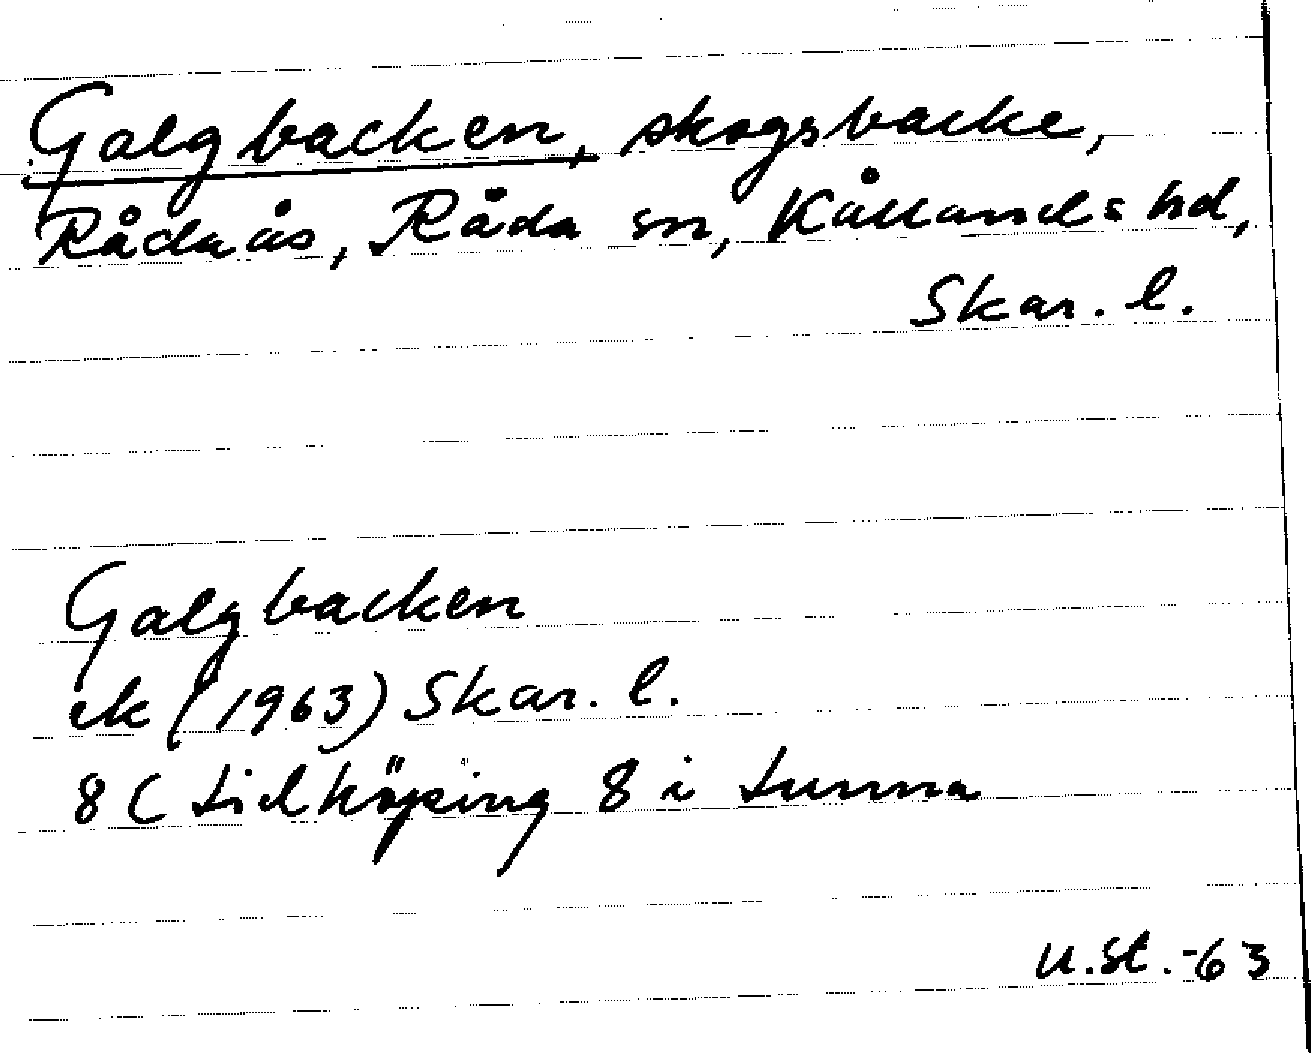 Galgbacken, skogsbacke,
Rådaås, Råda sn, Kållands hd,
Skar. l.
Galgbacken
ek (1963) Skar. l.
8 C Lidköping 8 i Lunna
U.St.-63